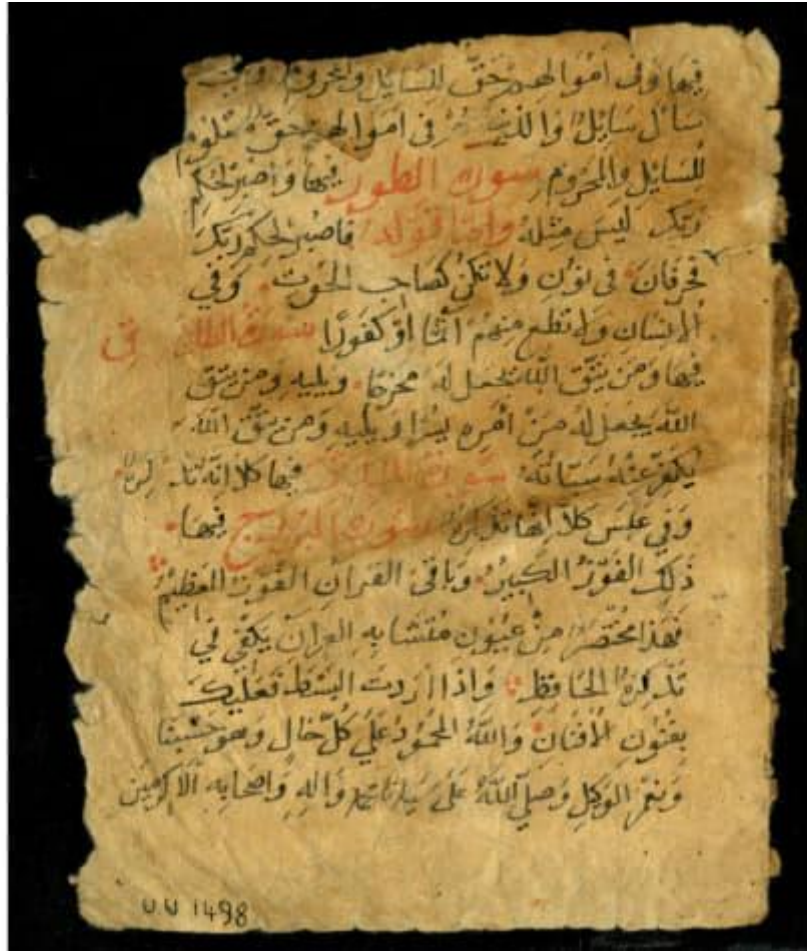 فيها وفى اموالهم حق للسايل والمحروم وفي
سأل سايل والذين هم فى اموالهم حق معلوم
للسايل والمحروم سورة الطور فيها واصبر لحكم
ربك ليس مثله واما قوله فاصبر لحكم ربك
فحرفان فى نون ولا تكن كصاحب الحوت وفي
الانسان ولا تطع منهم آثما او كفورا سورة الطلاق
فيها ومن يتق الله يجعل له مخرجا ويليه ومن يتق
الله يجعل له من امره يسرا ويليه ومن يتق الله
يكفر عنه سيئاته سورة فيها كلا انه تذكرة
وفي عبس كلا انها تذكرة سورة البروج فيها
ذلك الفوز الكبير وباقى القران الفوز العظيم
فهذا مختصر من عيون متشابه القران يكفي في
تذكرة الحافظ واذا اردت البسط فعليك
بفنون الافنان والله المحمود على كل حال وهو حسبنا
ونعم الوكيل وصلى الله على سيدنا محمد واله واصحابه الاكرمين
UU 1498